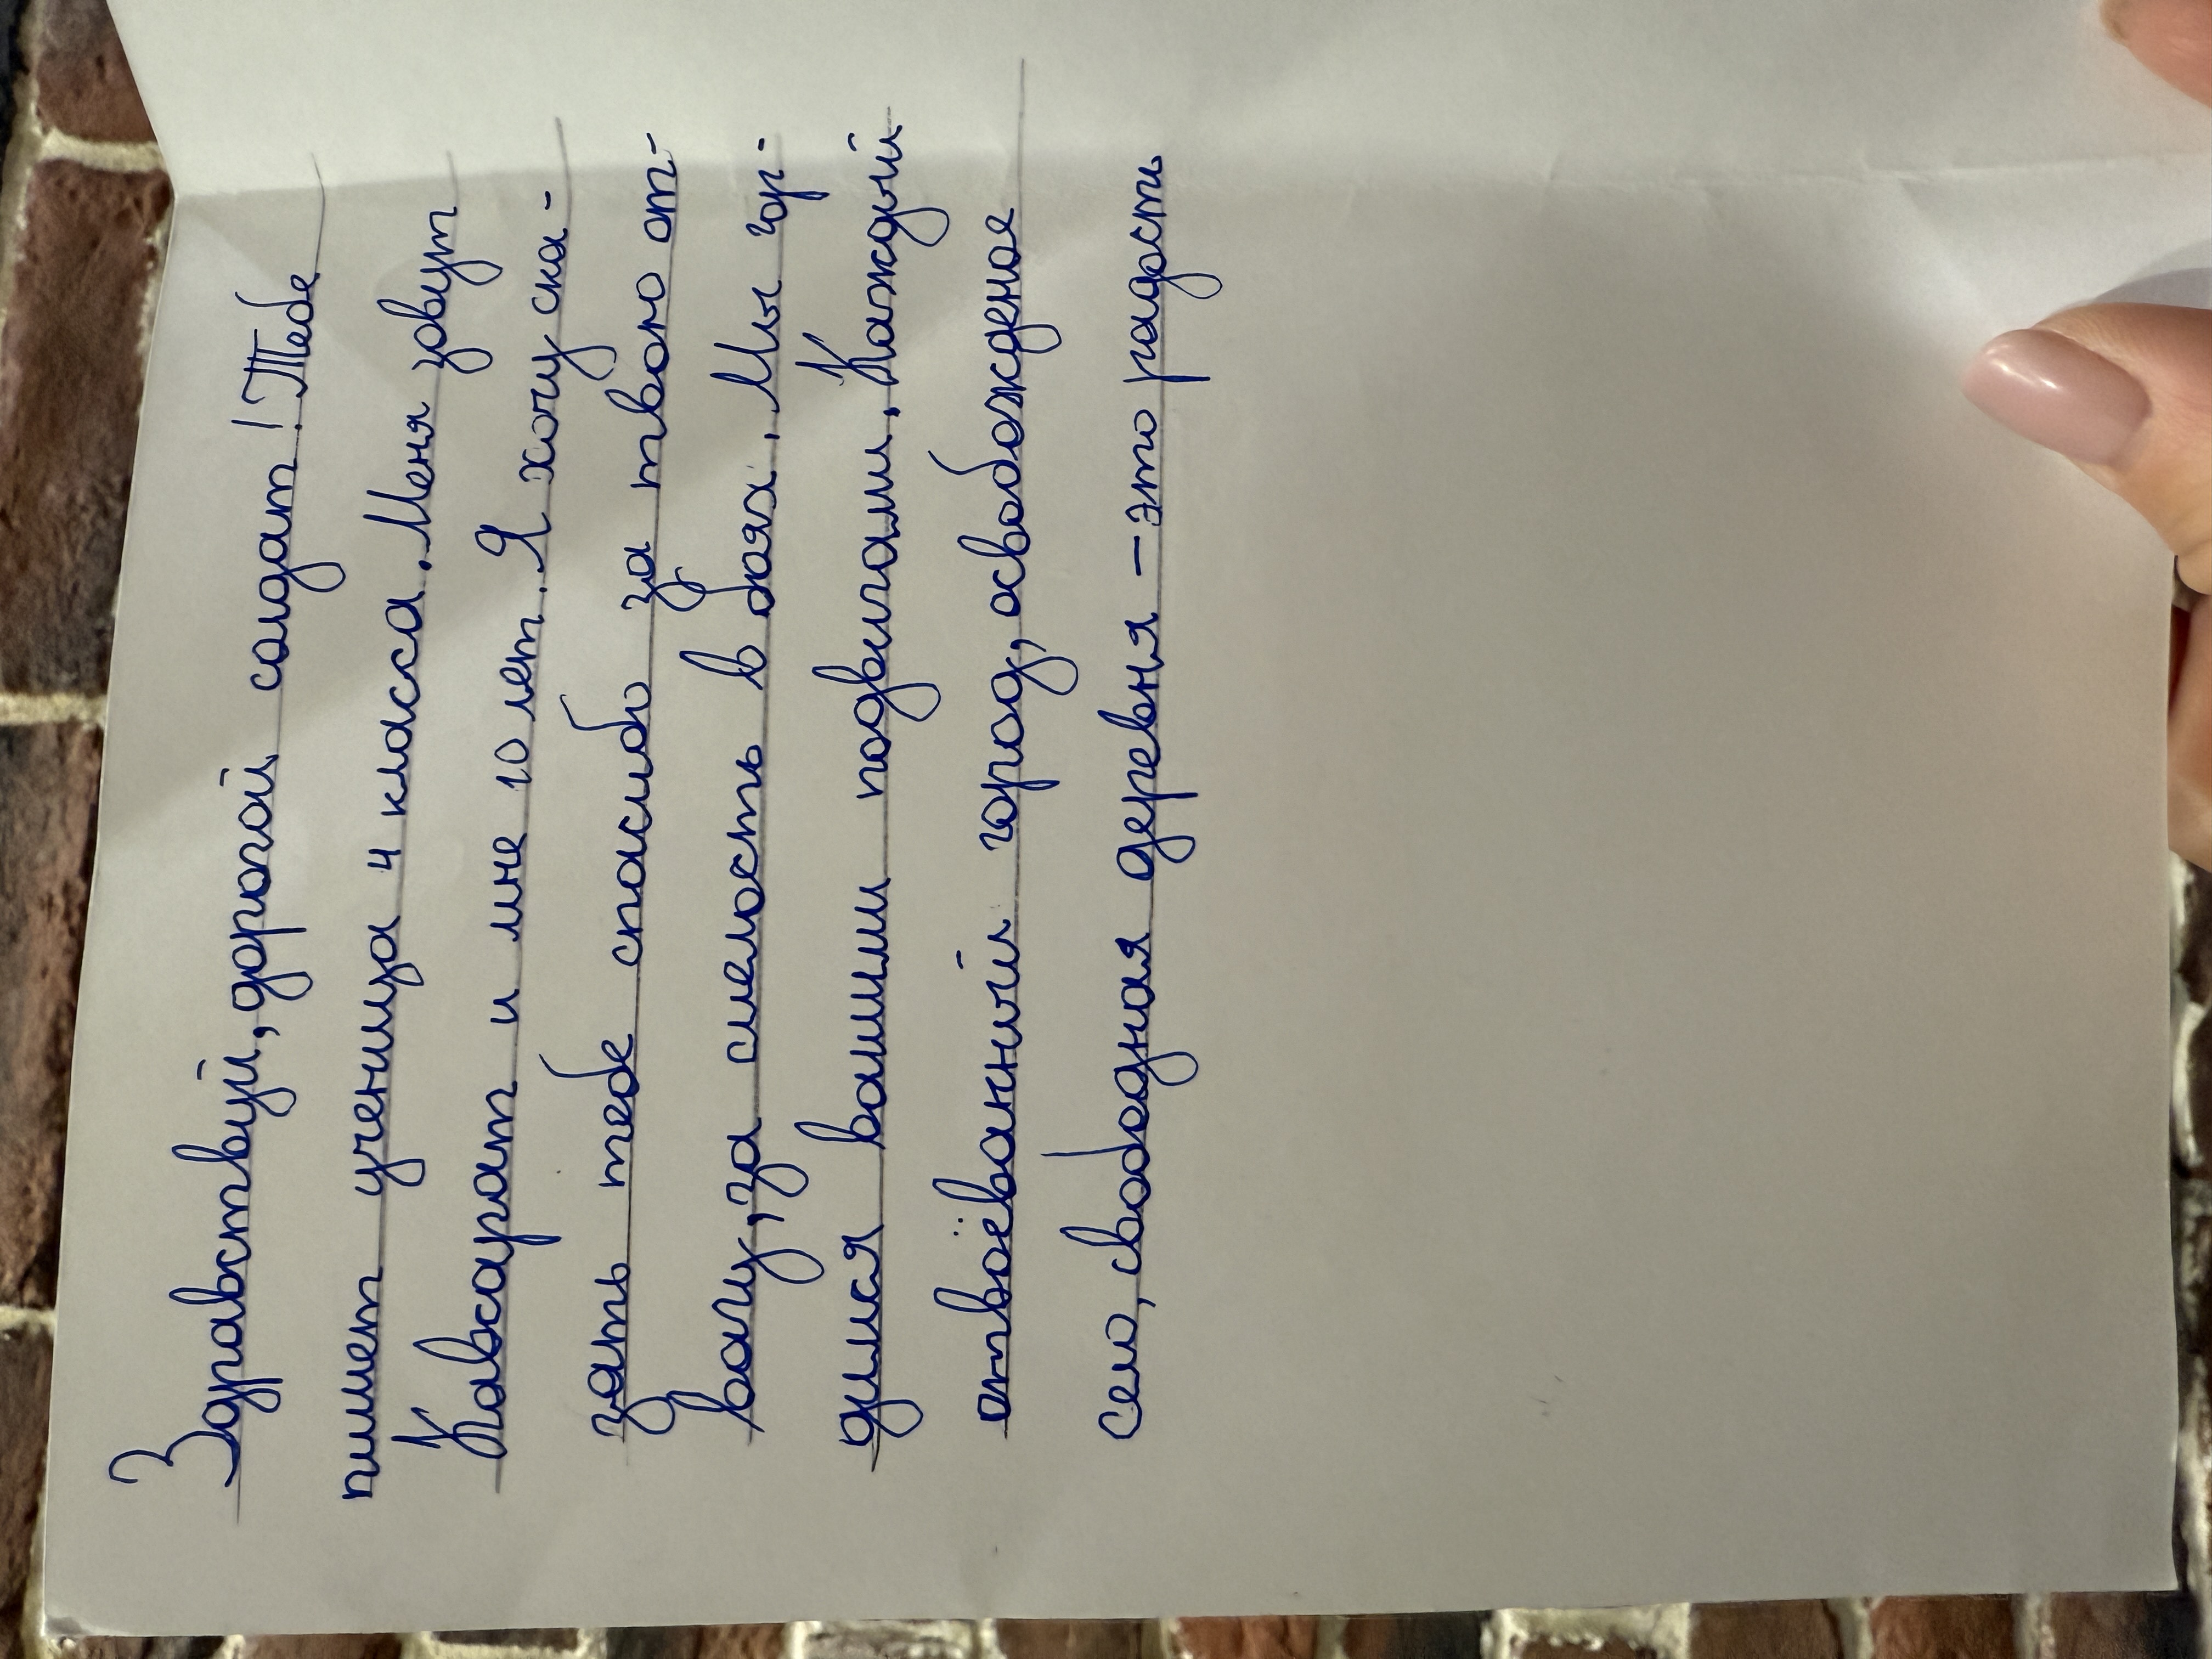 Здравствуй, дорогой солдат! Тебе
пишет ученица 4 класса. Меня зовут
Кавсарат и мне 10 лет. Я хочу ска-
зать тебе спасибо за твою от-
вагу, за смелость в боях. Мы гор-
димся вашими подвигами. Каждый
отвоёванный город, освобожденое
село, свободная деревня – это радость